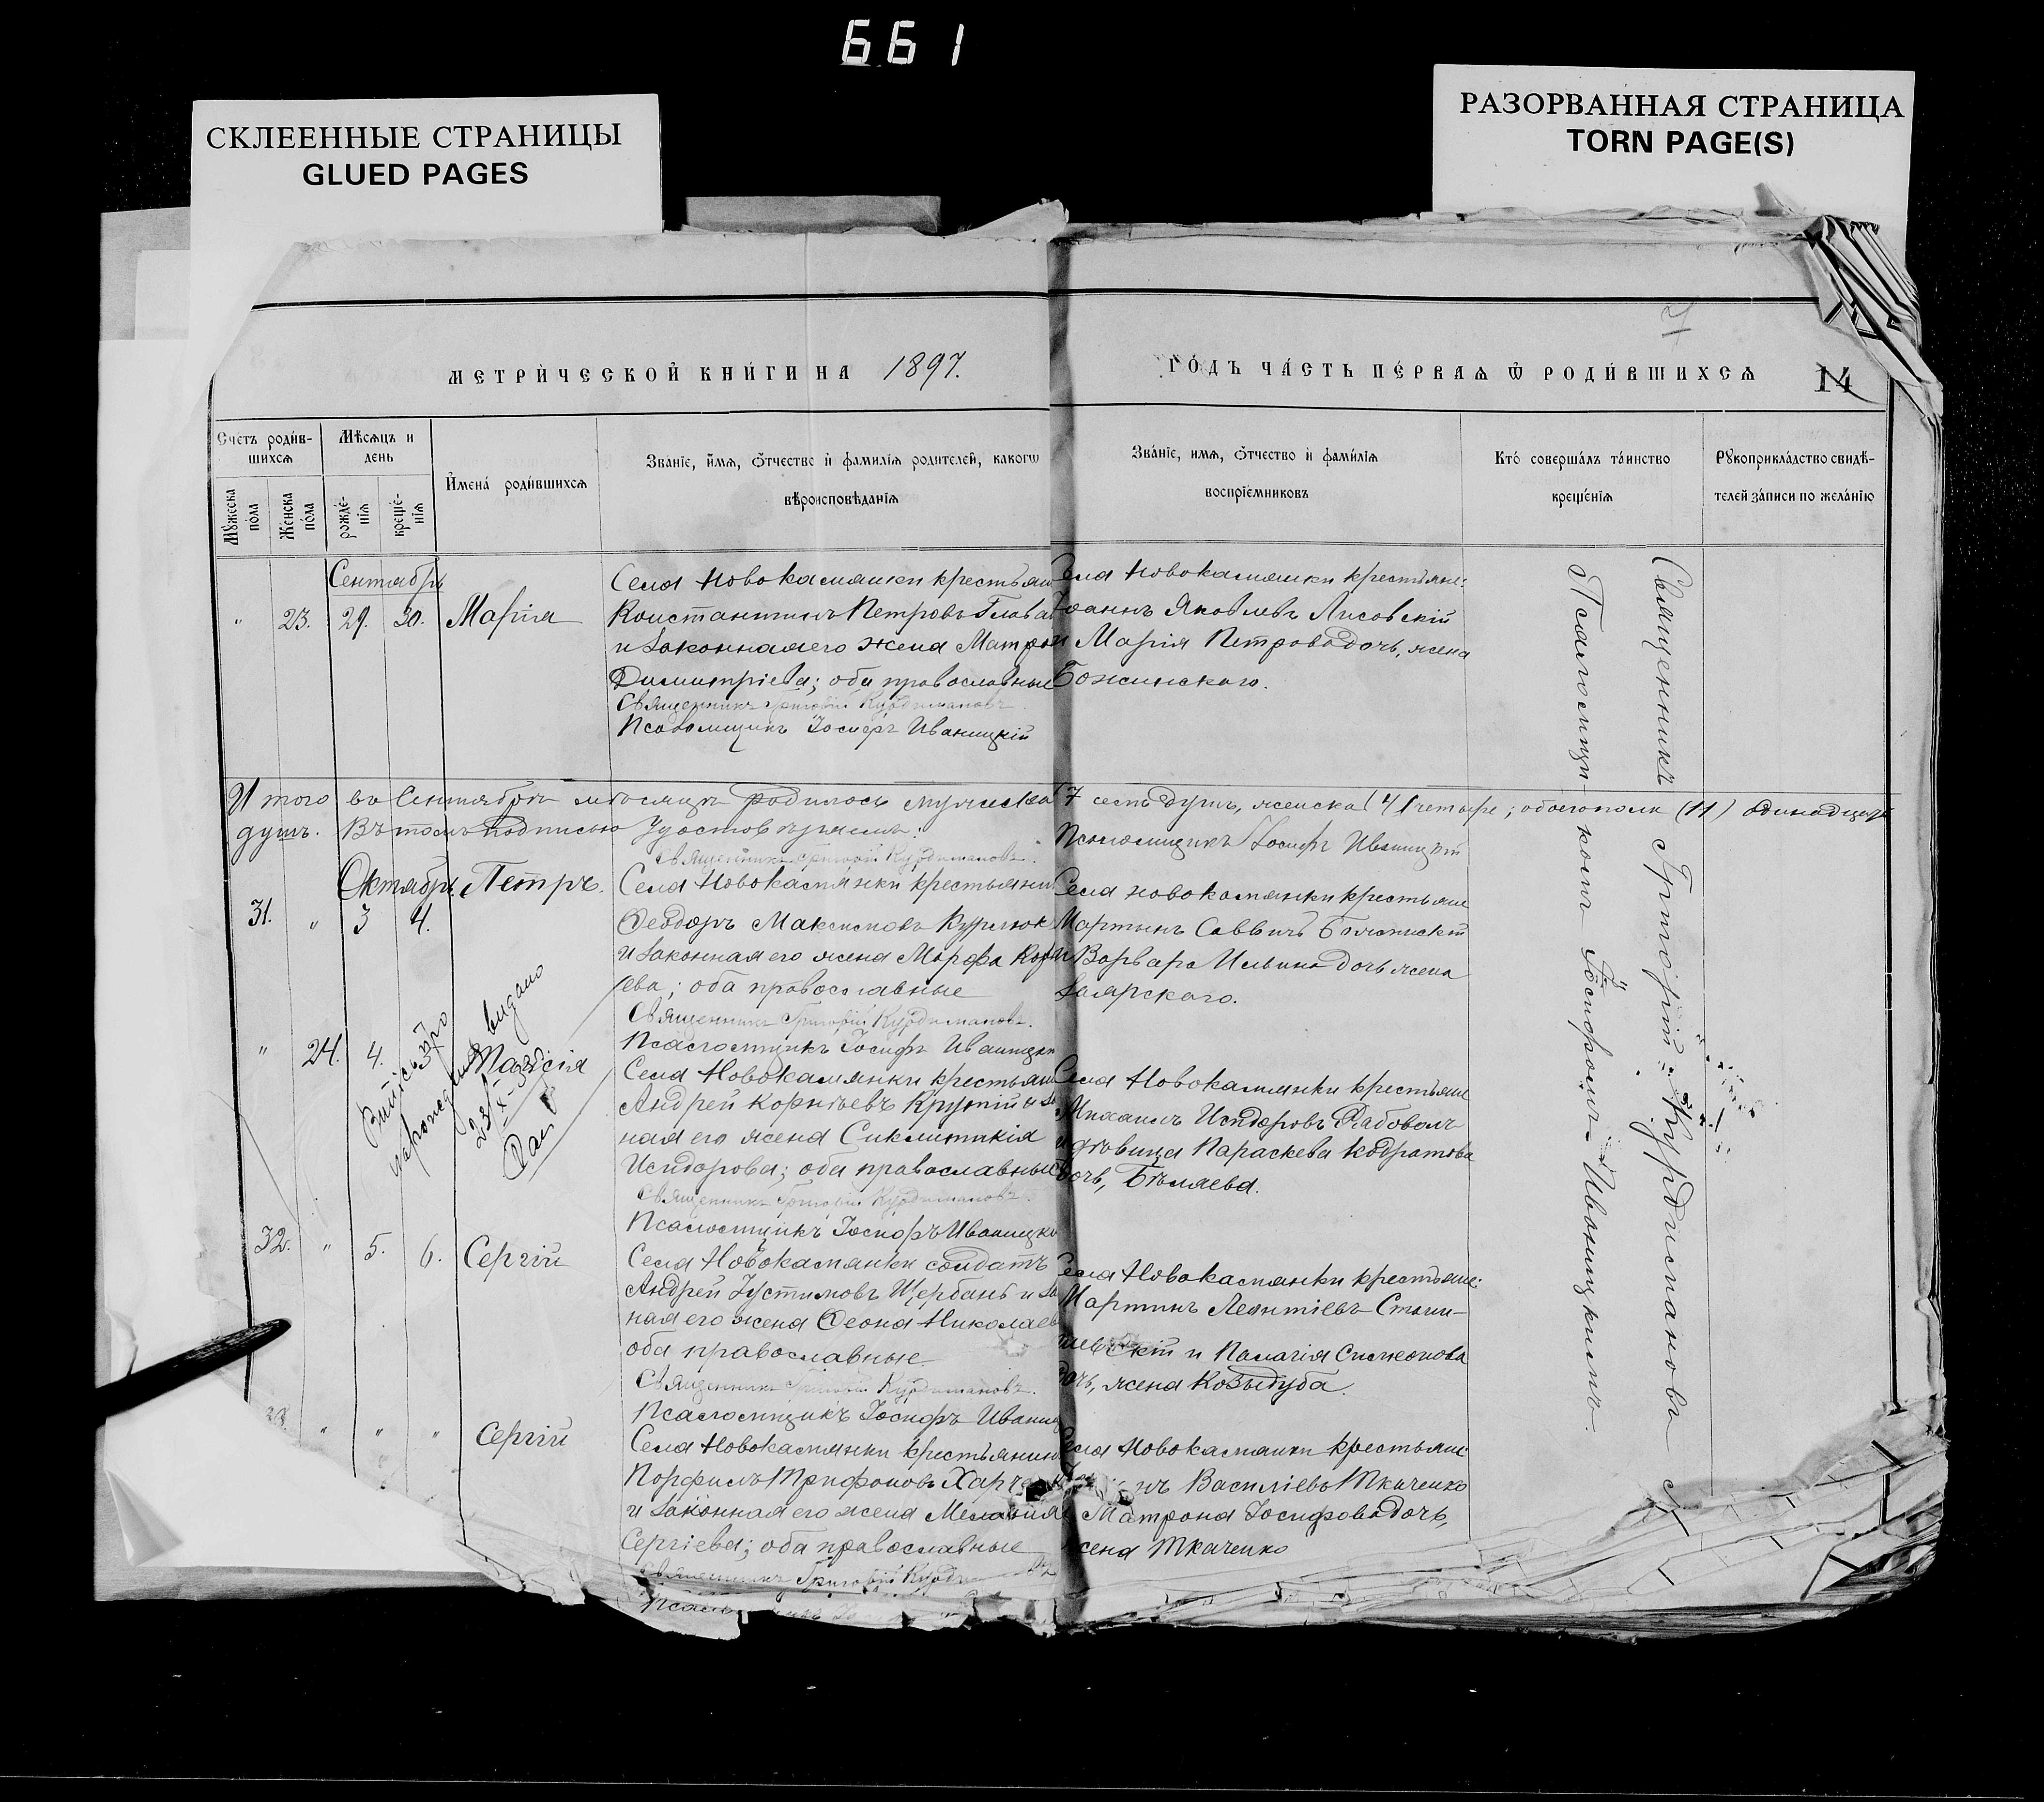 661
СКЛЕЕННЫЕ СТРАНИЦЫ
GLUED PAGES
РАЗОРВАННАЯ СТРАНИЦА
TORN PAGE(S)
МЕТРИ́ЧЕСКОЙ КНИ́ГИ НА 1897.
ГО́ДЪ ЧА́СТЬ ПЕ́РВАѦ Ѿ РОДИ́ВШИХСѦ
14
Счетъ роди́в-
шихсѧ
Мꙋжеска
по́ла
Же́нска
по́ла
Мѣсѧцъ и
день
рожде́-
нїѧ
креще́-
нїѧ
И҆мена́ роди́вшихсѧ
Зва́нїе, и҆́мѧ, ѻ҆́тчество и҆ фамилїѧ родителей, какогѡ
вѣроисповѣданїѧ
Зва́нїе, имѧ, ѻ҆́тчество и҆ фами́лїѧ
воспрїе́мниковъ
Кто́ соверша́лъ та́инство
креще́нїѧ
Рꙋкоприкла́дство свидѣ́-
телей за́писи по жела́нїю
Сентябрь
" 23. 29. 30. Марія
Села Новокамянки крестьян
Константинъ Петровъ Глава
и законная его жена Матро
Димитріева; оба православные
Священникъ Григорій Курдимановъ
Псаломщикъ Іосифъ Иваницкій
Села Новокамянки крестьяне:
Іоаннъ Яковлевъ Лисовскій
и Марія Петрова дочь, жена
Божинскаго.
Итого въ Сентябрѣ мѣсяцѣ родилось мужеска 7 семь душъ, женска (4) четыре; обоего пола (11) одинадцать
душъ. Въ томъ подписью удостовѣряемъ:
Священникъ Григорій Курдимановъ.
Псаломщикъ Іосифъ Иваницкій
Октябрь
31. " 3 4. Петръ.
Села Новокамянки крестьянин
Ѳеодоръ Максимовъ
и законная его жена Марфа
ева; оба православные
Священникъ Григорій Курдимановъ.
Псаломщикъ Іосифъ Иваницкій
Села Новокамянки крестьяне
Мартинъ Саввичъ
и Варвара Ильина дочь жена
Заярского.
" 24. 4.
видано
Села Новокамянки крестьян
Андрей Корнѣевъ Крутій и за
ная его жена Синклитикія
Исидорова; оба православные
Священникъ Григорій Курдимановъ.
Псаломщикъ Іосифъ Иваницкі
Села Новокамянки крестьяне
Михаилъ Исидоровъ
и дѣвица Параскева Кодратова
дочь, Бѣляева.
32. " 5. 6. Сергій
Села Новокамянки солдатъ
Андрей Іустимовъ Щербань и за
ная его жена Ѳеона Николаев
оба православные.
Священникъ Григорій Курдимановъ.
Псаломщикъ Іосифъ Иваниц
Села Новокамянки крестьяне:
Мартинъ Леонтіевъ
и Палагія Симеонова
дочь, жена Козыдуба.
" " " Сергій
Села Новокамянки крестьянин
Порфилъ Трифоновъ
и законная его жена Меланія
Сергіева; оба православные
Священникъ Григорій
Села Новокамянки крестьяне
Василіевъ Ткаченко
Матрона Іосифова дочь,
жена Ткаченко
Священникъ Григорій Курдимановъ съ
Псаломщикомъ Іосифомъ Иваницкимъ.